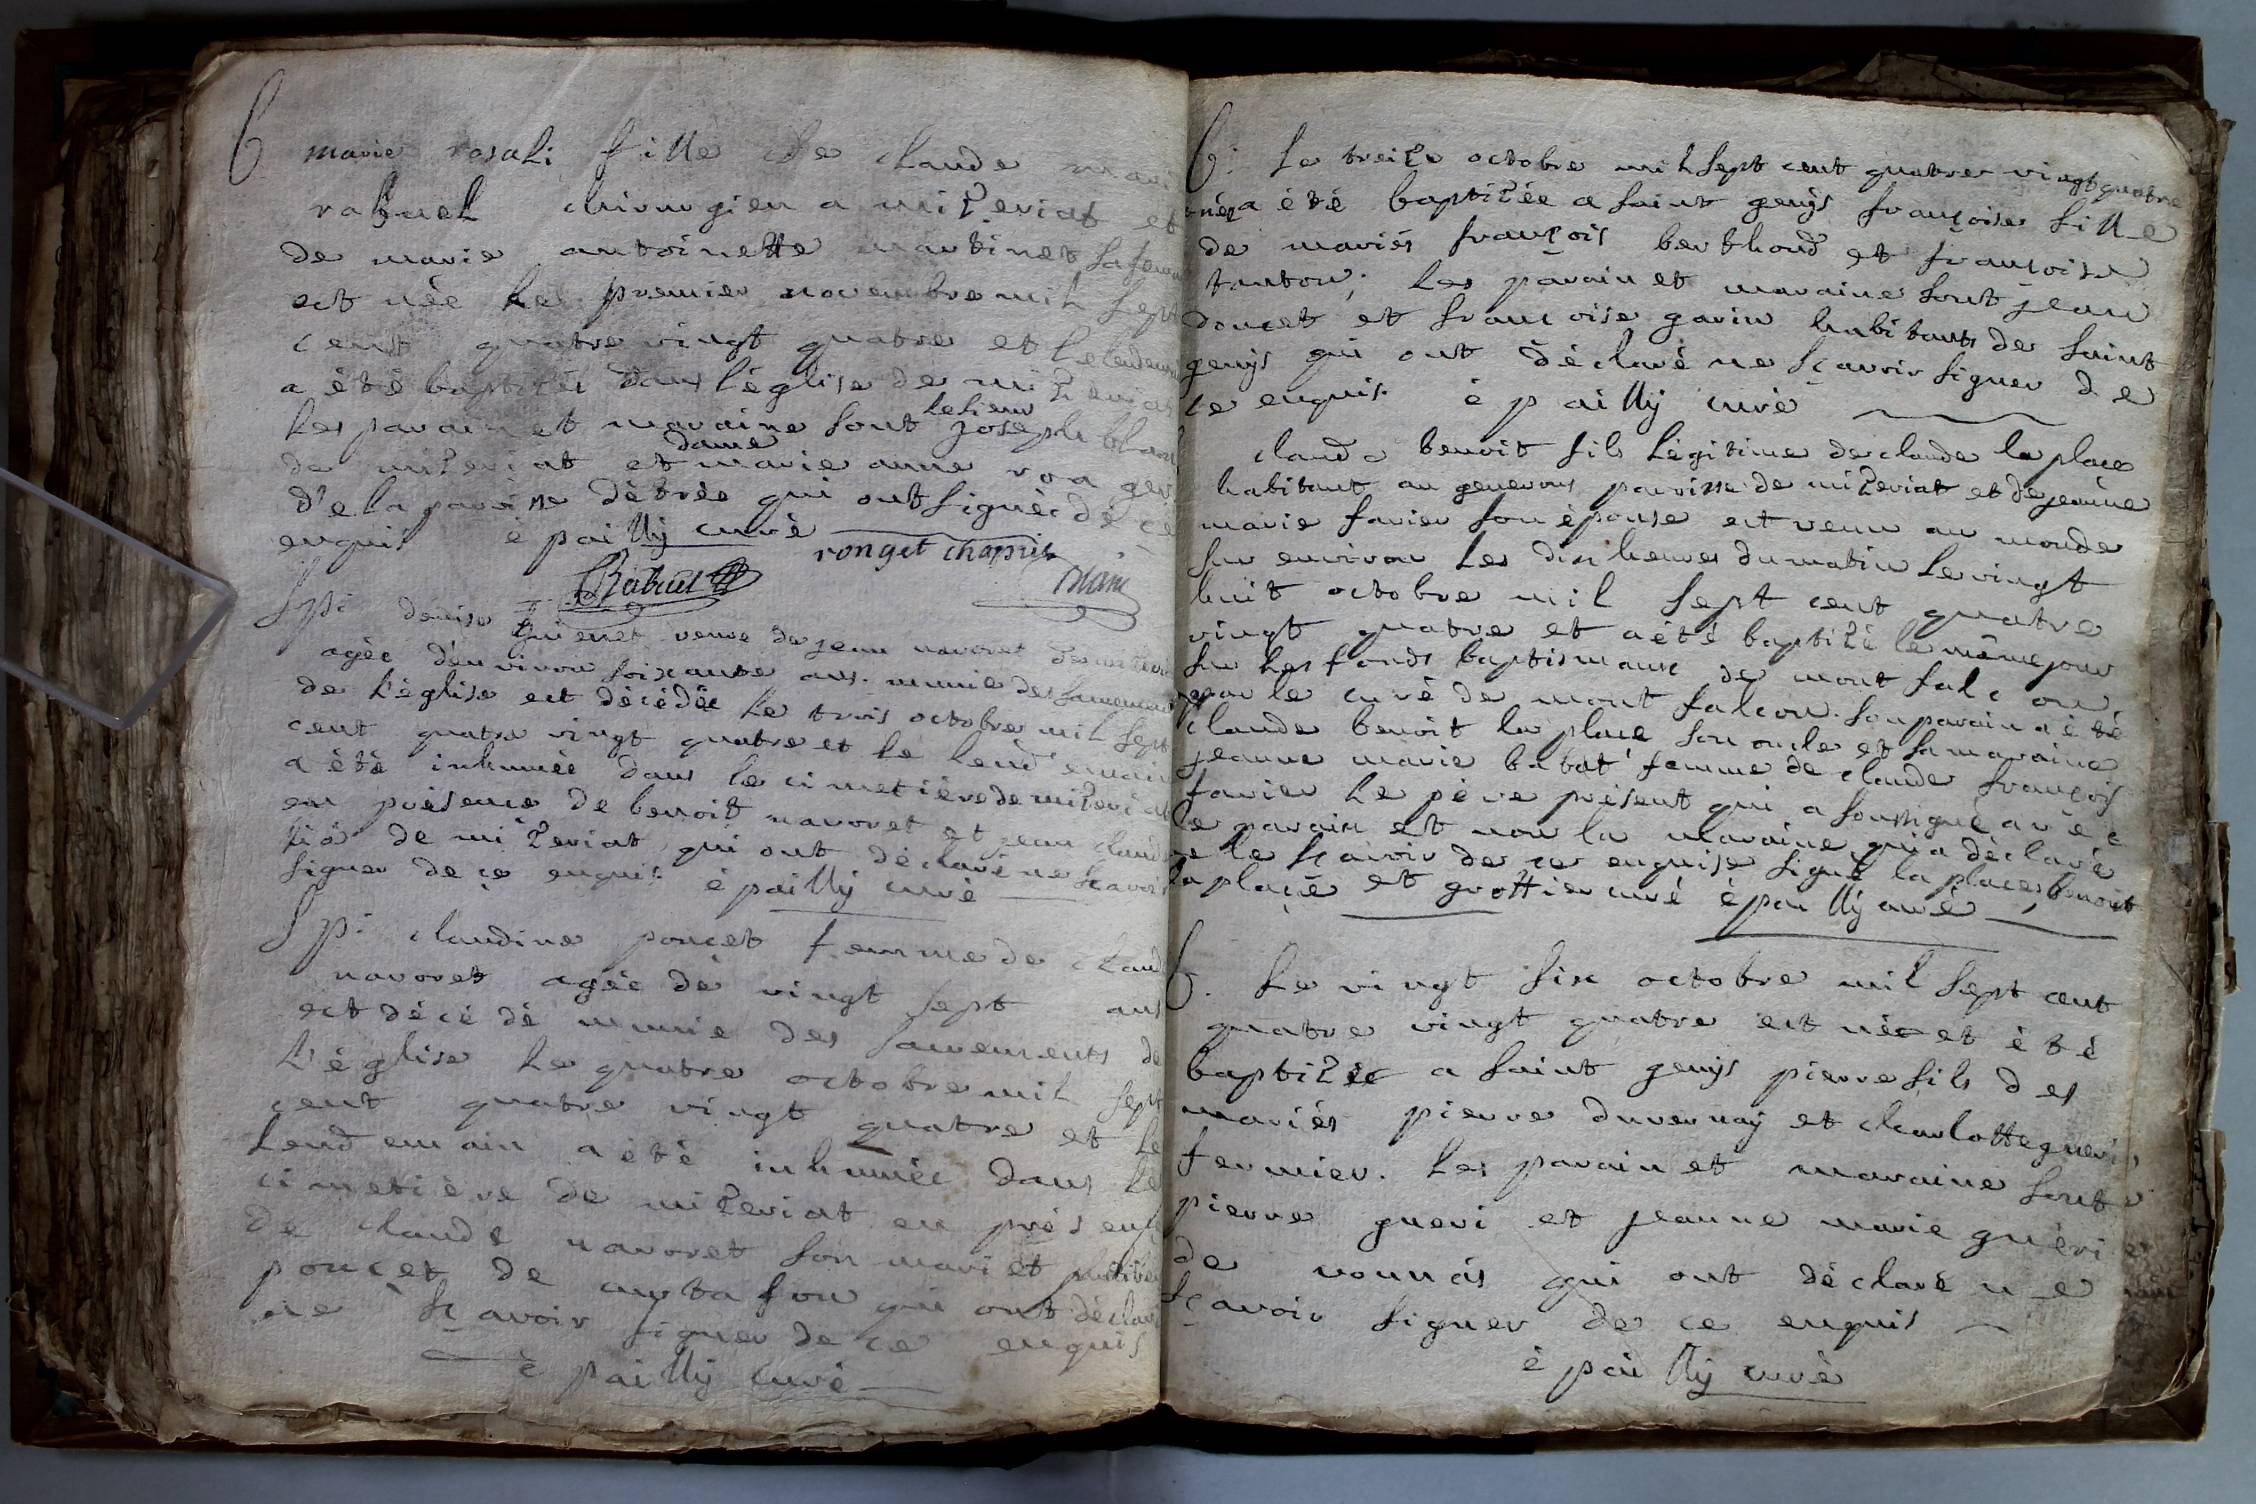 B marie rosali fille de claude mari
rabuel chirurgien a mizeriat et
de marie antoinette martinet sa femme
est née le premier novembre mil sept
cent quatre vingt quatre et le lendemain
a été baptizée dans l'église de mizeriat
les parain et maraine sont le sieur joseph blanc
de mizeriat et dame marie anne
de la paroisse d'étrée qui ont signéé de cé
enquis è pailly curé
ronget chapuis
Rabuel blanc
Spi denise guienet veuve de jean navoret de mizeriat
agéé d'environ soixante ans. munie des sacrements
de l'église est décédée le trois octobre mil sept
cent quatre vingt quatre et le lendemain
a été inhumée dans le cimetière de mizeriat
en présence de benoit navoret et jean claude
de mizeriat qui ont déclaré ne sçavoir
signer de çe enquis è pailly curé
Spi claudine poncet femme de claude
navoret agéé dé vingt sept ans
est décédé munie des sacrements de
l'église le quatre octobre mil sept
cent quatre vingt quatre et le
lendemain a été inhuméé dans le
cimetière de mizeriat en présence
de claude navoret son mari et
poncet de qui ont déclaré
ne sçavoir signer de ce enquis
è pailly curé
B. Le treize octobre mil sept cent quatre vingt quatre
née a été baptizée a saint genys françoise fille
de mariés françois berthoud et françoise
tanton; les parain et maraine sont jean
doucet et françoise gavin habitants de saint
genys qui ont déclaré ne sçavoir signer de
ce enquis. è pailly curé
claude benoit fils légitime de claude la place
habitant au genevous paroisse de mizeriat et de jeanne
marie favier son épouse est venu au monde
sur environ les dix heures du matin le vingt
huit octobre mil sept cent quatre
vingt quatre et a été baptizé le même jour
sur les fonds baptismaux de mont falcon
par le curé de mont falcon. son parain a été
claude benoit la place son oncle et sa maraine
jeanne marie babat femme de claude françois
favier le père présent qui a soussigné avec
le parain et non la maraine qui a déclaré
ne le sçavoir de ce enquise signé la place, benoit
la place et grottier curé è pailly curé
B. Le vingt six octobre mil sept cent
quatre vingt quatre est née et été
baptizée a saint genys pierre fils des
mariés pierre duvernay et charlotte gueri
fermier. les parain et maraine sont
pierre gueri et jeanne marie guéri
de vonnas qui ont déclaré ne
sçavoir signer de ce enquis
è pailly curé